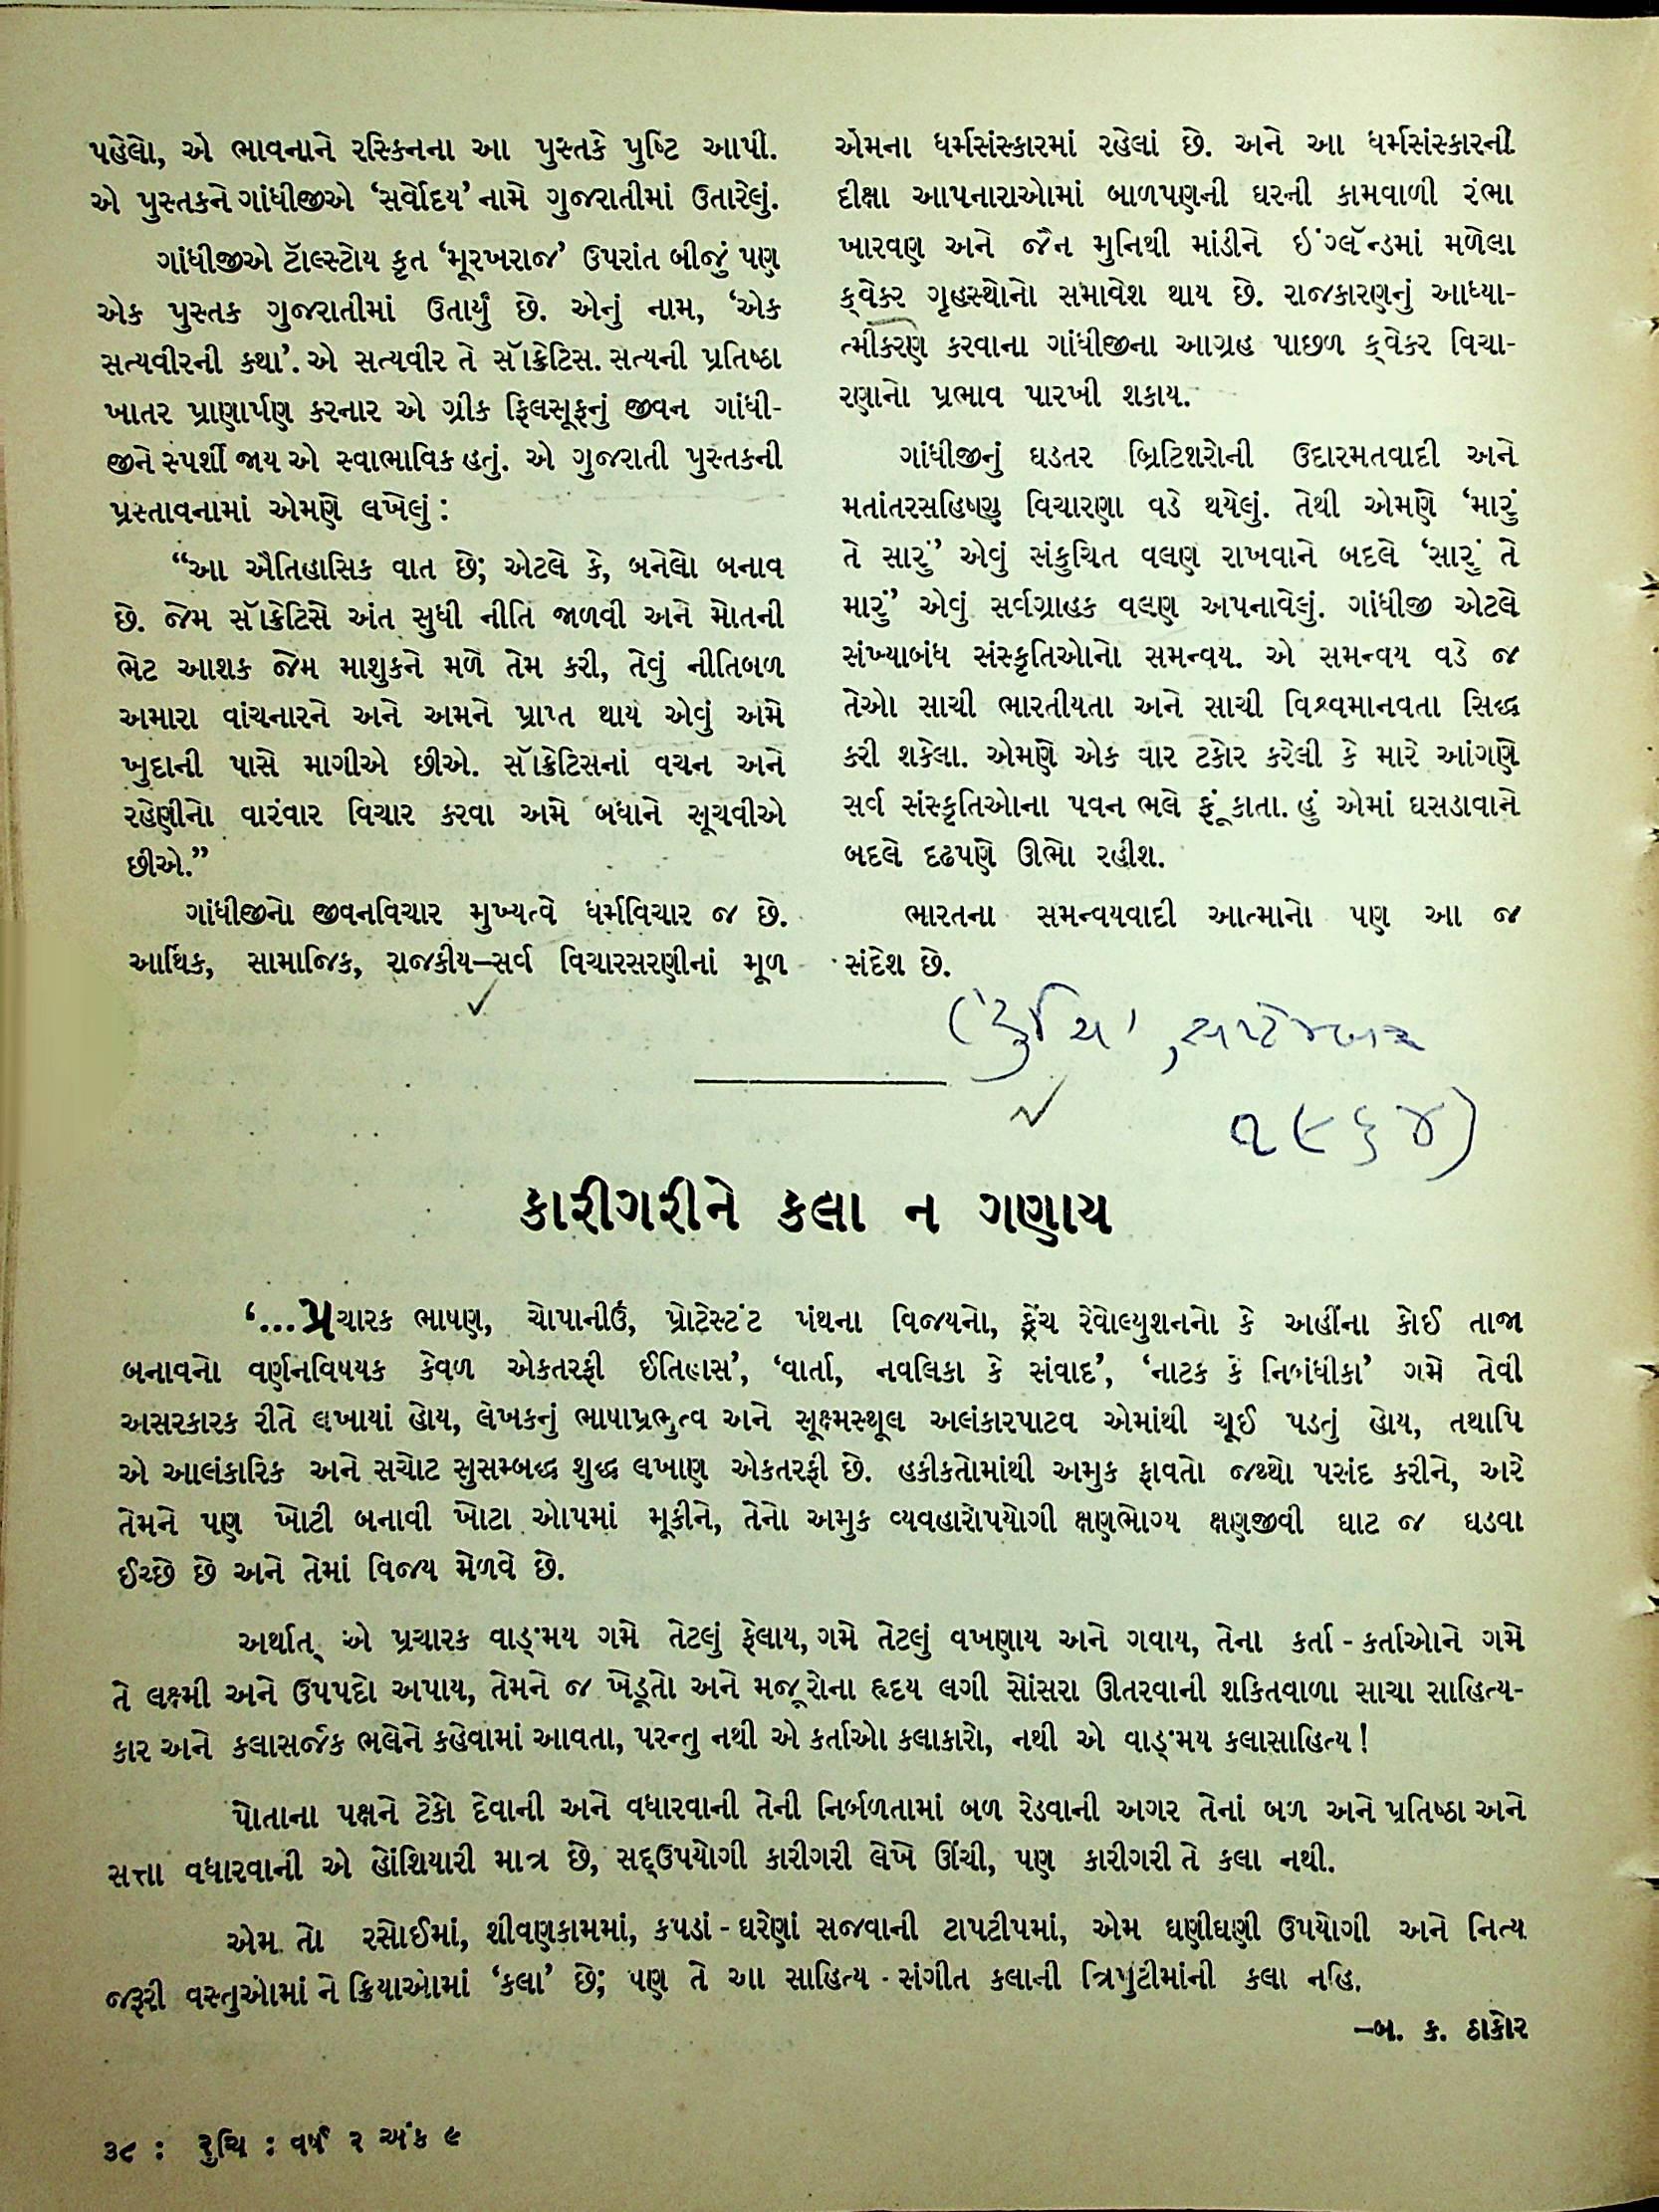 પહેલો, એ ભાવનાને રસ્કિનના આ પુસ્તકે પુષ્ટિ આપી.
એ પુસ્તકને ગાંધીજીએ ‘સર્વોદય’ નામે ગુજરાતીમાં ઉતારેલું.
ગાંધીજીએ ટૉલ્સ્ટોય કૃત ‘મૂરખરાજ’ ઉપરાંત બીજું પણ
એક પુસ્તક ગુજરાતીમાં ઉતાર્યું છે. એનું નામ, ‘એક
સત્યવીરની કથા’. એ સત્યવીર તે સૉક્રેટિસ. સત્યની પ્રતિષ્ઠા
ખાતર પ્રાણાર્પણ કરનાર એ ગ્રીક ફિલસૂફનું જીવન ગાંધી-
જીને સ્પર્શી જાય એ સ્વાભાવિક હતું. એ ગુજરાતી પુસ્તકની
પ્રસ્તાવનામાં એમણે લખેલું :
“આ ઐતિહાસિક વાત છે; એટલે કે, બનેલો બનાવ
છે. જેમ સૉક્રેટિસે અંત સુધી નીતિ જાળવી અને મોતની
ભેટ આશક જેમ માશુકને મળે તેમ કરી, તેવું નીતિબળ
અમારા વાંચનારને અને અમને પ્રાપ્ત થાય એવું અમે
ખુદાની પાસે માગીએ છીએ. સૉક્રેટિસનાં વચન અને
રહેણીનો વારંવાર વિચાર કરવા અમે બધાને સૂચવીએ
છીએ.”
ગાંધીજીનો જીવનવિચાર મુખ્યત્વે ધર્મવિચાર જ છે.
આર્થિક, સામાજિક, રાજકીય—સર્વ વિચારસરણીનાં મૂળ
એમના ધર્મસંસ્કારમાં રહેલાં છે. અને આ ધર્મસંસ્કારની
દીક્ષા આપનારાઓમાં બાળપણની ઘરની કામવાળી રંભા
ખારવણ અને જૈન મુનિથી માંડીને ઇંગ્લૅન્ડમાં મળેલા
ક્વેકર ગૃહસ્થોનો સમાવેશ થાય છે. રાજકારણનું આધ્યા-
ત્મીકરણ કરવાના ગાંધીજીના આગ્રહ પાછળ ક્વેકર વિચા-
રણાનો પ્રભાવ પારખી શકાય.
ગાંધીજીનું ઘડતર બ્રિટિશરોની ઉદારમતવાદી અને
મતાંતરસહિષ્ણુ વિચારણા વડે થયેલું. તેથી એમણે ‘મારું
તે સારું’ એવું સંકુચિત વલણ રાખવાને બદલે ‘સારું તે
મારું’ એવું સર્વગ્રાહક વલણ અપનાવેલું. ગાંધીજી એટલે
સંખ્યાબંધ સંસ્કૃતિઓનો સમન્વય. એ સમન્વય વડે જ
તેઓ સાચી ભારતીયતા અને સાચી વિશ્વમાનવતા સિદ્ધ
કરી શકેલા. એમણે એક વાર ટકોર કરેલી કે મારે આંગણે
સર્વ સંસ્કૃતિઓના પવન ભલે ફૂંકાતા. હું એમાં ઘસડાવાને
બદલે દૃઢપણે ઊભો રહીશ.
ભારતના સમન્વયવાદી આત્માનો પણ આ જ
સંદેશ છે.
(‘રુચિ’, સપ્ટેમ્બર
૧૯૬૪)
કારીગરીને કલા ન ગણાય
‘...પ્રચારક ભાષણ, ચોપાનીઉં, પ્રોટેસ્ટંટ પંથના વિજયનો, ફ્રેંચ રેવોલ્યુશનનો કે અહીંના કોઈ તાજા
બનાવનો વર્ણનવિષયક કેવળ એકતરફી ઈતિહાસ’, ‘વાર્તા, નવલિકા કે સંવાદ’, ‘નાટક કે નિબંધીકા’ ગમે તેવી
અસરકારક રીતે લખાયાં હોય, લેખકનું ભાષાપ્રભુત્વ અને સૂક્ષ્મસ્થૂલ અલંકારપાટવ એમાંથી ચૂઈ પડતું હોય, તથાપિ
એ આલંકારિક અને સચોટ સુસમ્બદ્ધ શુદ્ધ લખાણ એકતરફી છે. હકીકતોમાંથી અમુક ફાવતો જથ્થો પસંદ કરીને, અરે
તેમને પણ ખોટી બનાવી ખોટા ઓપમાં મૂકીને, તેનો અમુક વ્યવહારોપયોગી ક્ષણભોગ્ય ક્ષણજીવી ઘાટ જ ઘડવા
ઈચ્છે છે અને તેમાં વિજય મેળવે છે.
અર્થાત્ એ પ્રચારક વાઙ્મય ગમે તેટલું ફેલાય, ગમે તેટલું વખણાય અને ગવાય, તેના કર્તા - કર્તાઓને ગમે
તે લક્ષ્મી અને ઉપપદો અપાય, તેમને જ ખેડૂતો અને મજૂરોના હૃદય લગી સોંસરા ઊતરવાની શકિતવાળા સાચા સાહિત્ય-
કાર અને કલાસર્જક ભલેને કહેવામાં આવતા, પરન્તુ નથી એ કર્તાઓ કલાકારો, નથી એ વાઙ્મય કલાસાહિત્ય !
પોતાના પક્ષને ટેકો દેવાની અને વધારવાની તેની નિર્બળતામાં બળ રેડવાની અગર તેનાં બળ અને પ્રતિષ્ઠા અને
સત્તા વધારવાની એ હોંશિયારી માત્ર છે, સદ્ઉપયોગી કારીગરી લેખે ઊંચી, પણ કારીગરી તે કલા નથી.
એમ તો રસોઈમાં, શીવણકામમાં, કપડાં - ઘરેણાં સજવાની ટાપટીપમાં, એમ ઘણીઘણી ઉપયોગી અને નિત્ય
જરૂરી વસ્તુઓમાં ને ક્રિયાઓમાં ‘કલા’ છે; પણ તે આ સાહિત્ય - સંગીત કલાની ત્રિપુટીમાંની કલા નહિ.
—બ. ક. ઠાકોર
૩૮ : રુચિ : વર્ષ ૨ અંક ૯